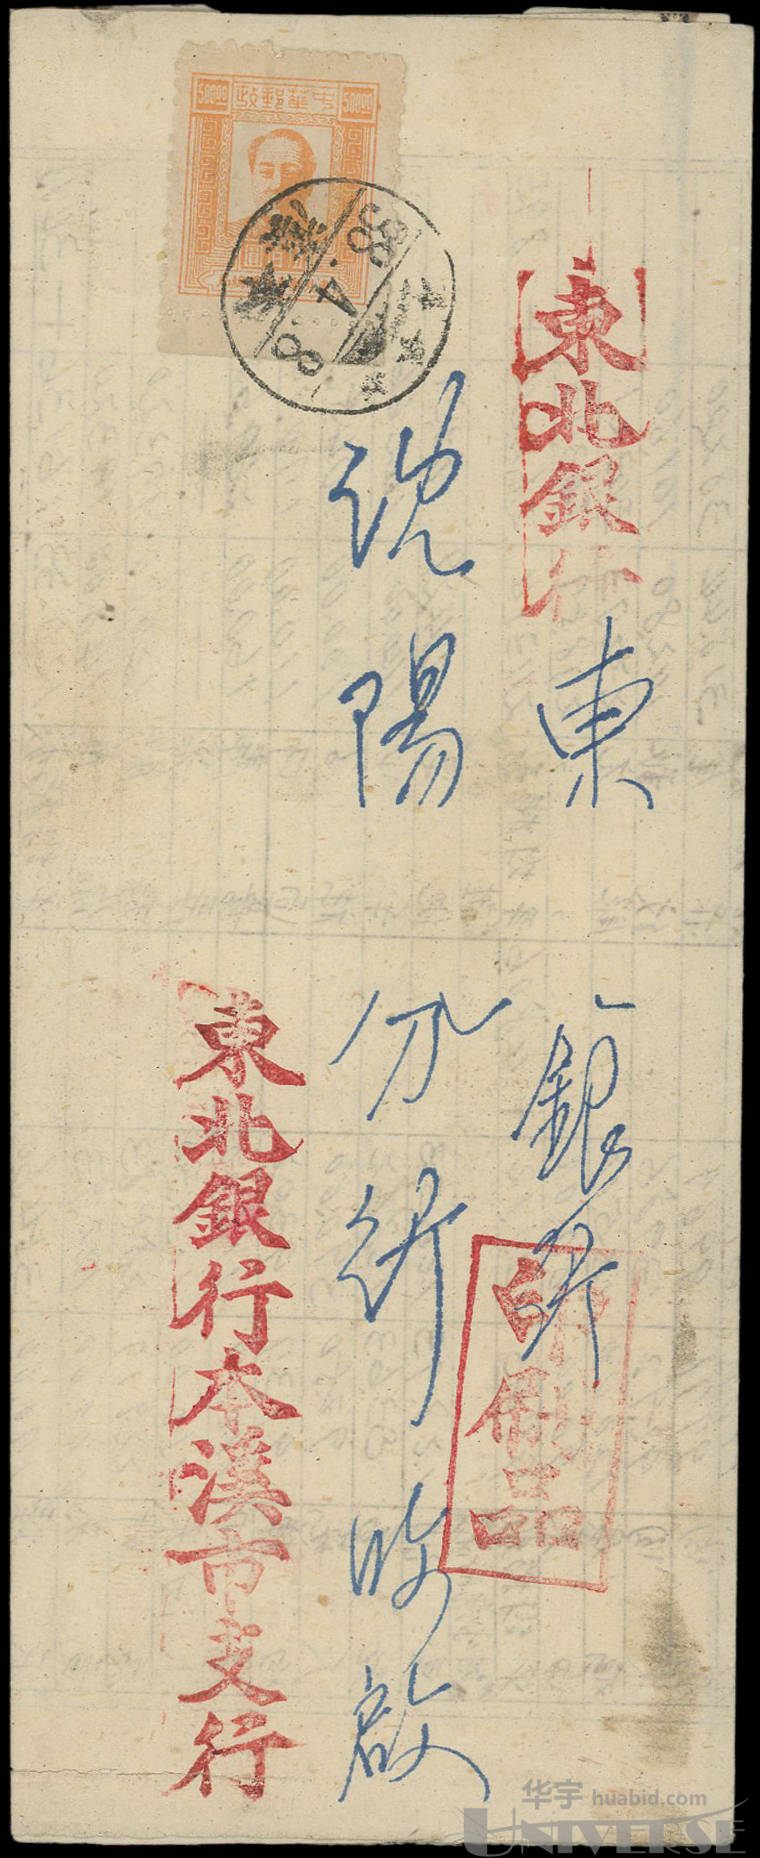 500.00
中華郵政
500.00
38.4.8
東北銀行
東銀行
瀋陽分行收啟
印刷品
東北銀行本溪市支行
华宇 huabid.com
UNIVERSE